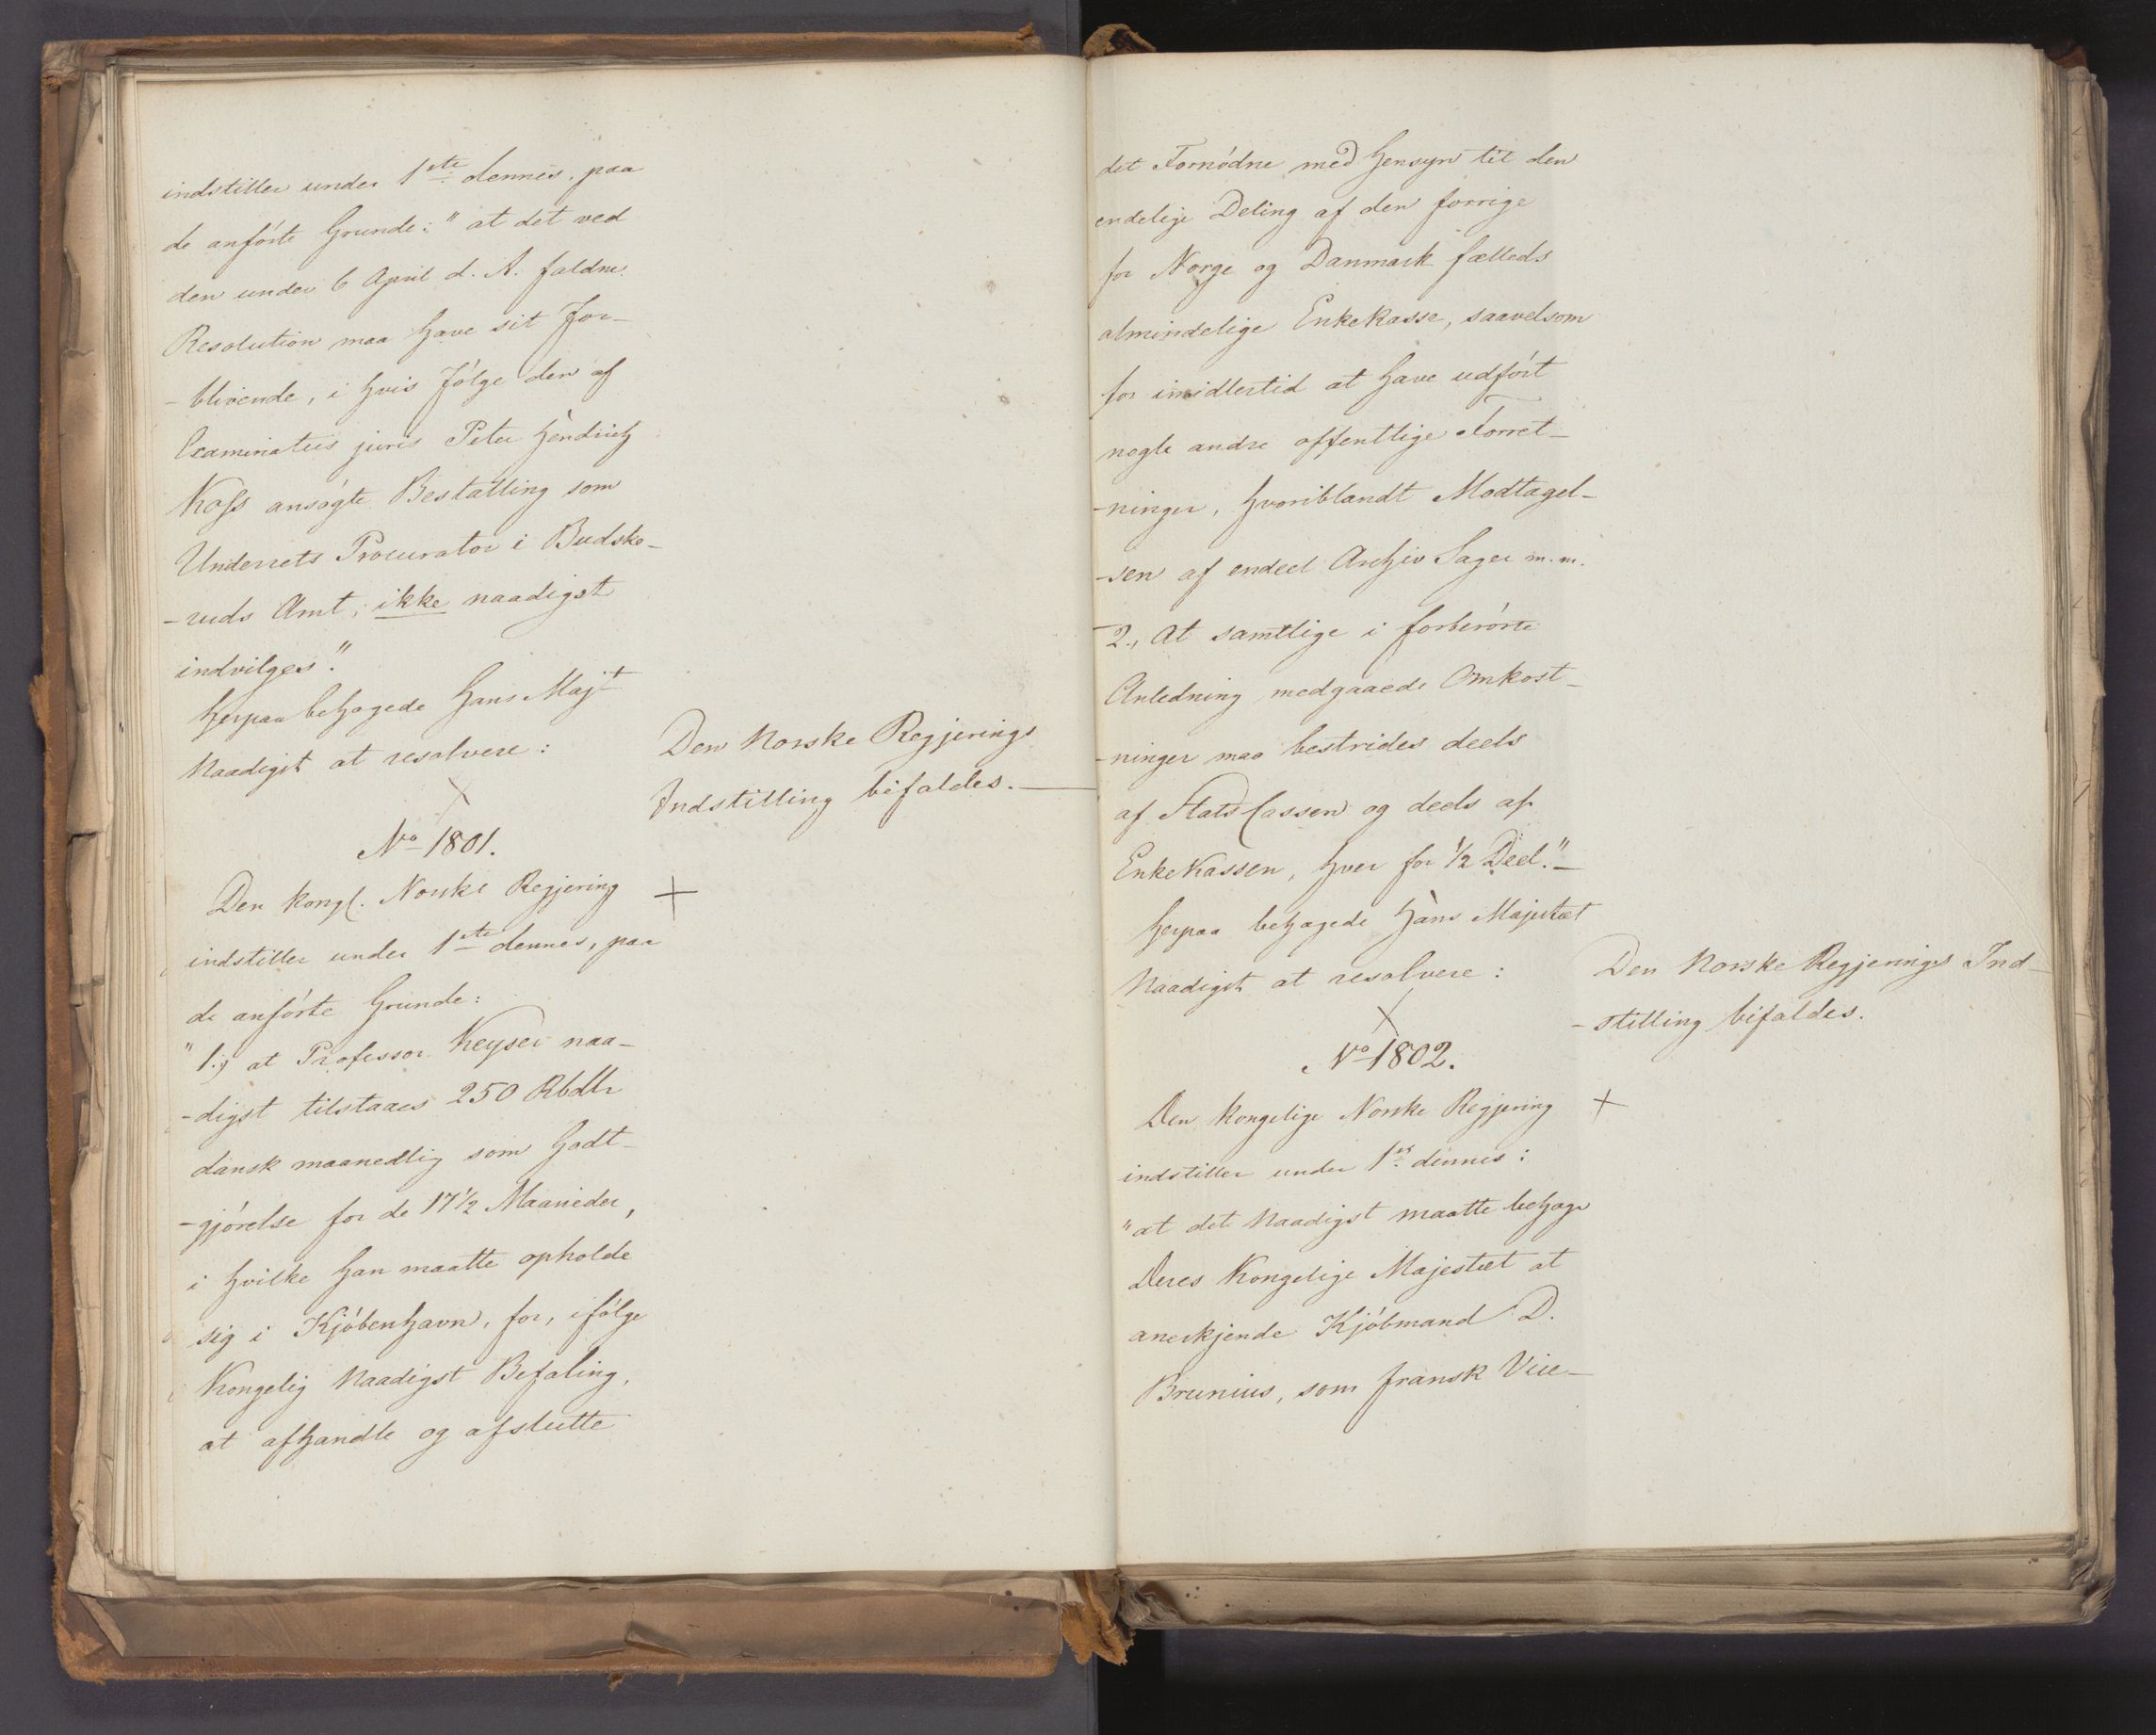 indstiller under 1ste dennes, paa
de anförte Grunde: "at det ved
den under 6 April d. A. faldne
Resolution maa have sit For-
-blivende, i hvis Fölge den af
Examinatus juris Peter Hendrich
Koss ansögte Bestalling som
Underrets Procurator i Budske-
-ruds Amt, ikke naadigst
indvilges".
Herpaa behagede Hans Majt
Naadigst at resolvere:
Den Norske Regjerings
Indstilling bifaldes.—
No 1801.
Den kongl. Norske Regjering
indstiller under 1ste dennes, paa
de anförte Grunde:
"1.) at Professor Keyser naa-
-digst tilstaaes 250 Rbdlr
dansk maanedlig som Godt-
-gjörelse for de 17 1/2 Maaneder,
i hvilke han maatte opholde
sig i Kjöbenhavn, for, ifölge
Kongelig Naadigst Befaling,
at afhandle og afslutte
det Fornödne med Hensyn til den
endelige Deling af den forrige
for Norge og Danmark fælleds
almindelige Enkekasse, saavelsom
for imidlertid at have udfört
nogle andre offentlige Forret-
-ninger, hvoriblandt Modtagel-
-sen af endeel Archiv Sager m.m.
2., At samtlige i forberörte
Anledning medgaaede Omkost-
-ninger maa bestrides deels
af StatsCassen og deels af
EnkeKassen, hver for 1/2 Deel."—
Herpaa behagede Hans Majestæt
Naadigst at resolvere:
Den Norske Regjerings Ind-
-stilling bifaldes.
No 1802.
Den Kongelige Norske Regjering
indstiller under 1ste dennes:
"at det Naadigst maatte behage
Deres Kongelige Majestæt at
anerkjende Kjöbmand D.
Brunius, som fransk Vice-